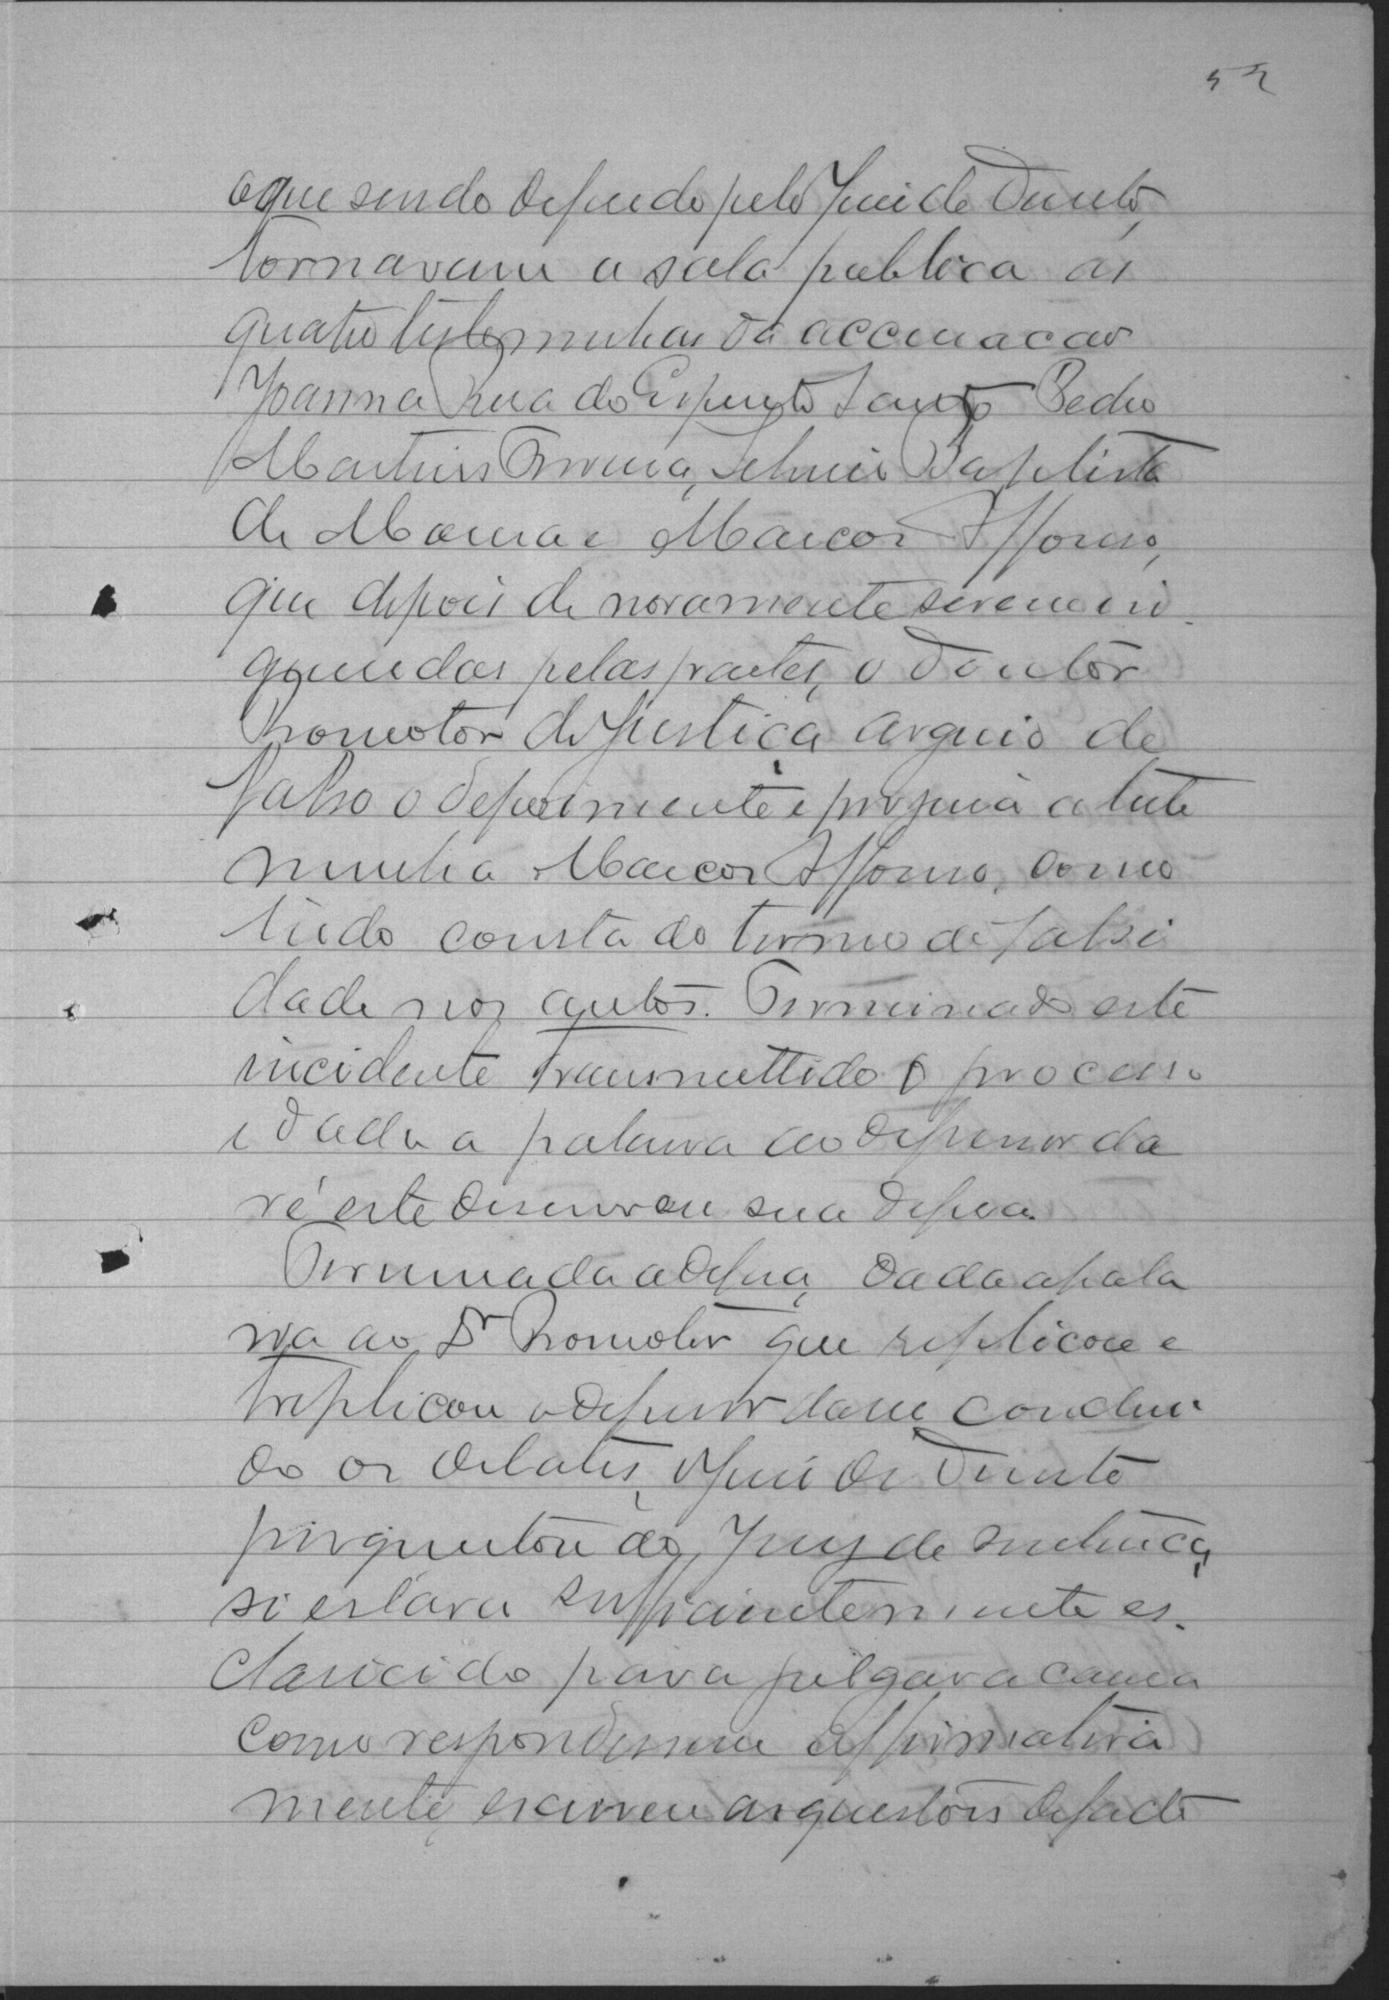 52
o que sendo deferido pelo Juiz de Direito,
tornaram a sala publica as
quatro testemunhas da accusacao
Joanna Rosa do Espirito Santo Pedro
Martins, Baptista
de Moura e Marcos Affonso,
que depois de novamente serem in
queridas pelas partes, o Doutor
Promotor de Justiça arguio de
falso o depoimento e perjura a teste
munha Marcos Affonso, como
tudo consta do termo de falsi
dade nos autos. Terminado este
incidente transmettido o processo
e dada a palavra ao defensor da
ré este desenvolveu sua defesa.
Terminada a defesa, dada a pala
vra ao Dr Promotor que replicou e
treplicou o defensor da ré e concluin
do os debates, o Juiz de Direito
perguntou ao Jury de sentença,
si estava sufficientemente es-
clarecido para julgar a causa
como respondessem affirmativa
mente, escreveu as questões de facto